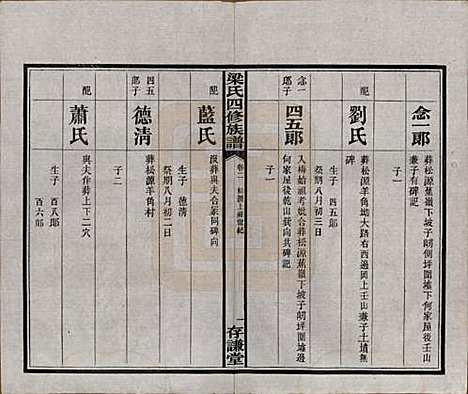 念一郎
葬松源蕉嶺下坡子閘坪圍墟下何家屋後壬山
兼子有碑記
配
劉氏
葬松源羊角坳大路右西邊岡上壬山兼子土墳無
碑
生子 四五郎
念一
郎子
四五郎
入梅始祖考妣合葬松源蕉嶺下坡子閘坪圍墟下
何家屋後乾山巽向共碑記
祭期八月初三日
子一
梁氏四修族譜
卷二
一
存謙堂
配
藍氏
沒葬與夫合家同碑向
祭期八月初二日
生子 德清
四五
郎子
德清
葬松源羊角村
子二
配
蕭氏
與夫作葬上下二穴
生子 百八郎
百六郎